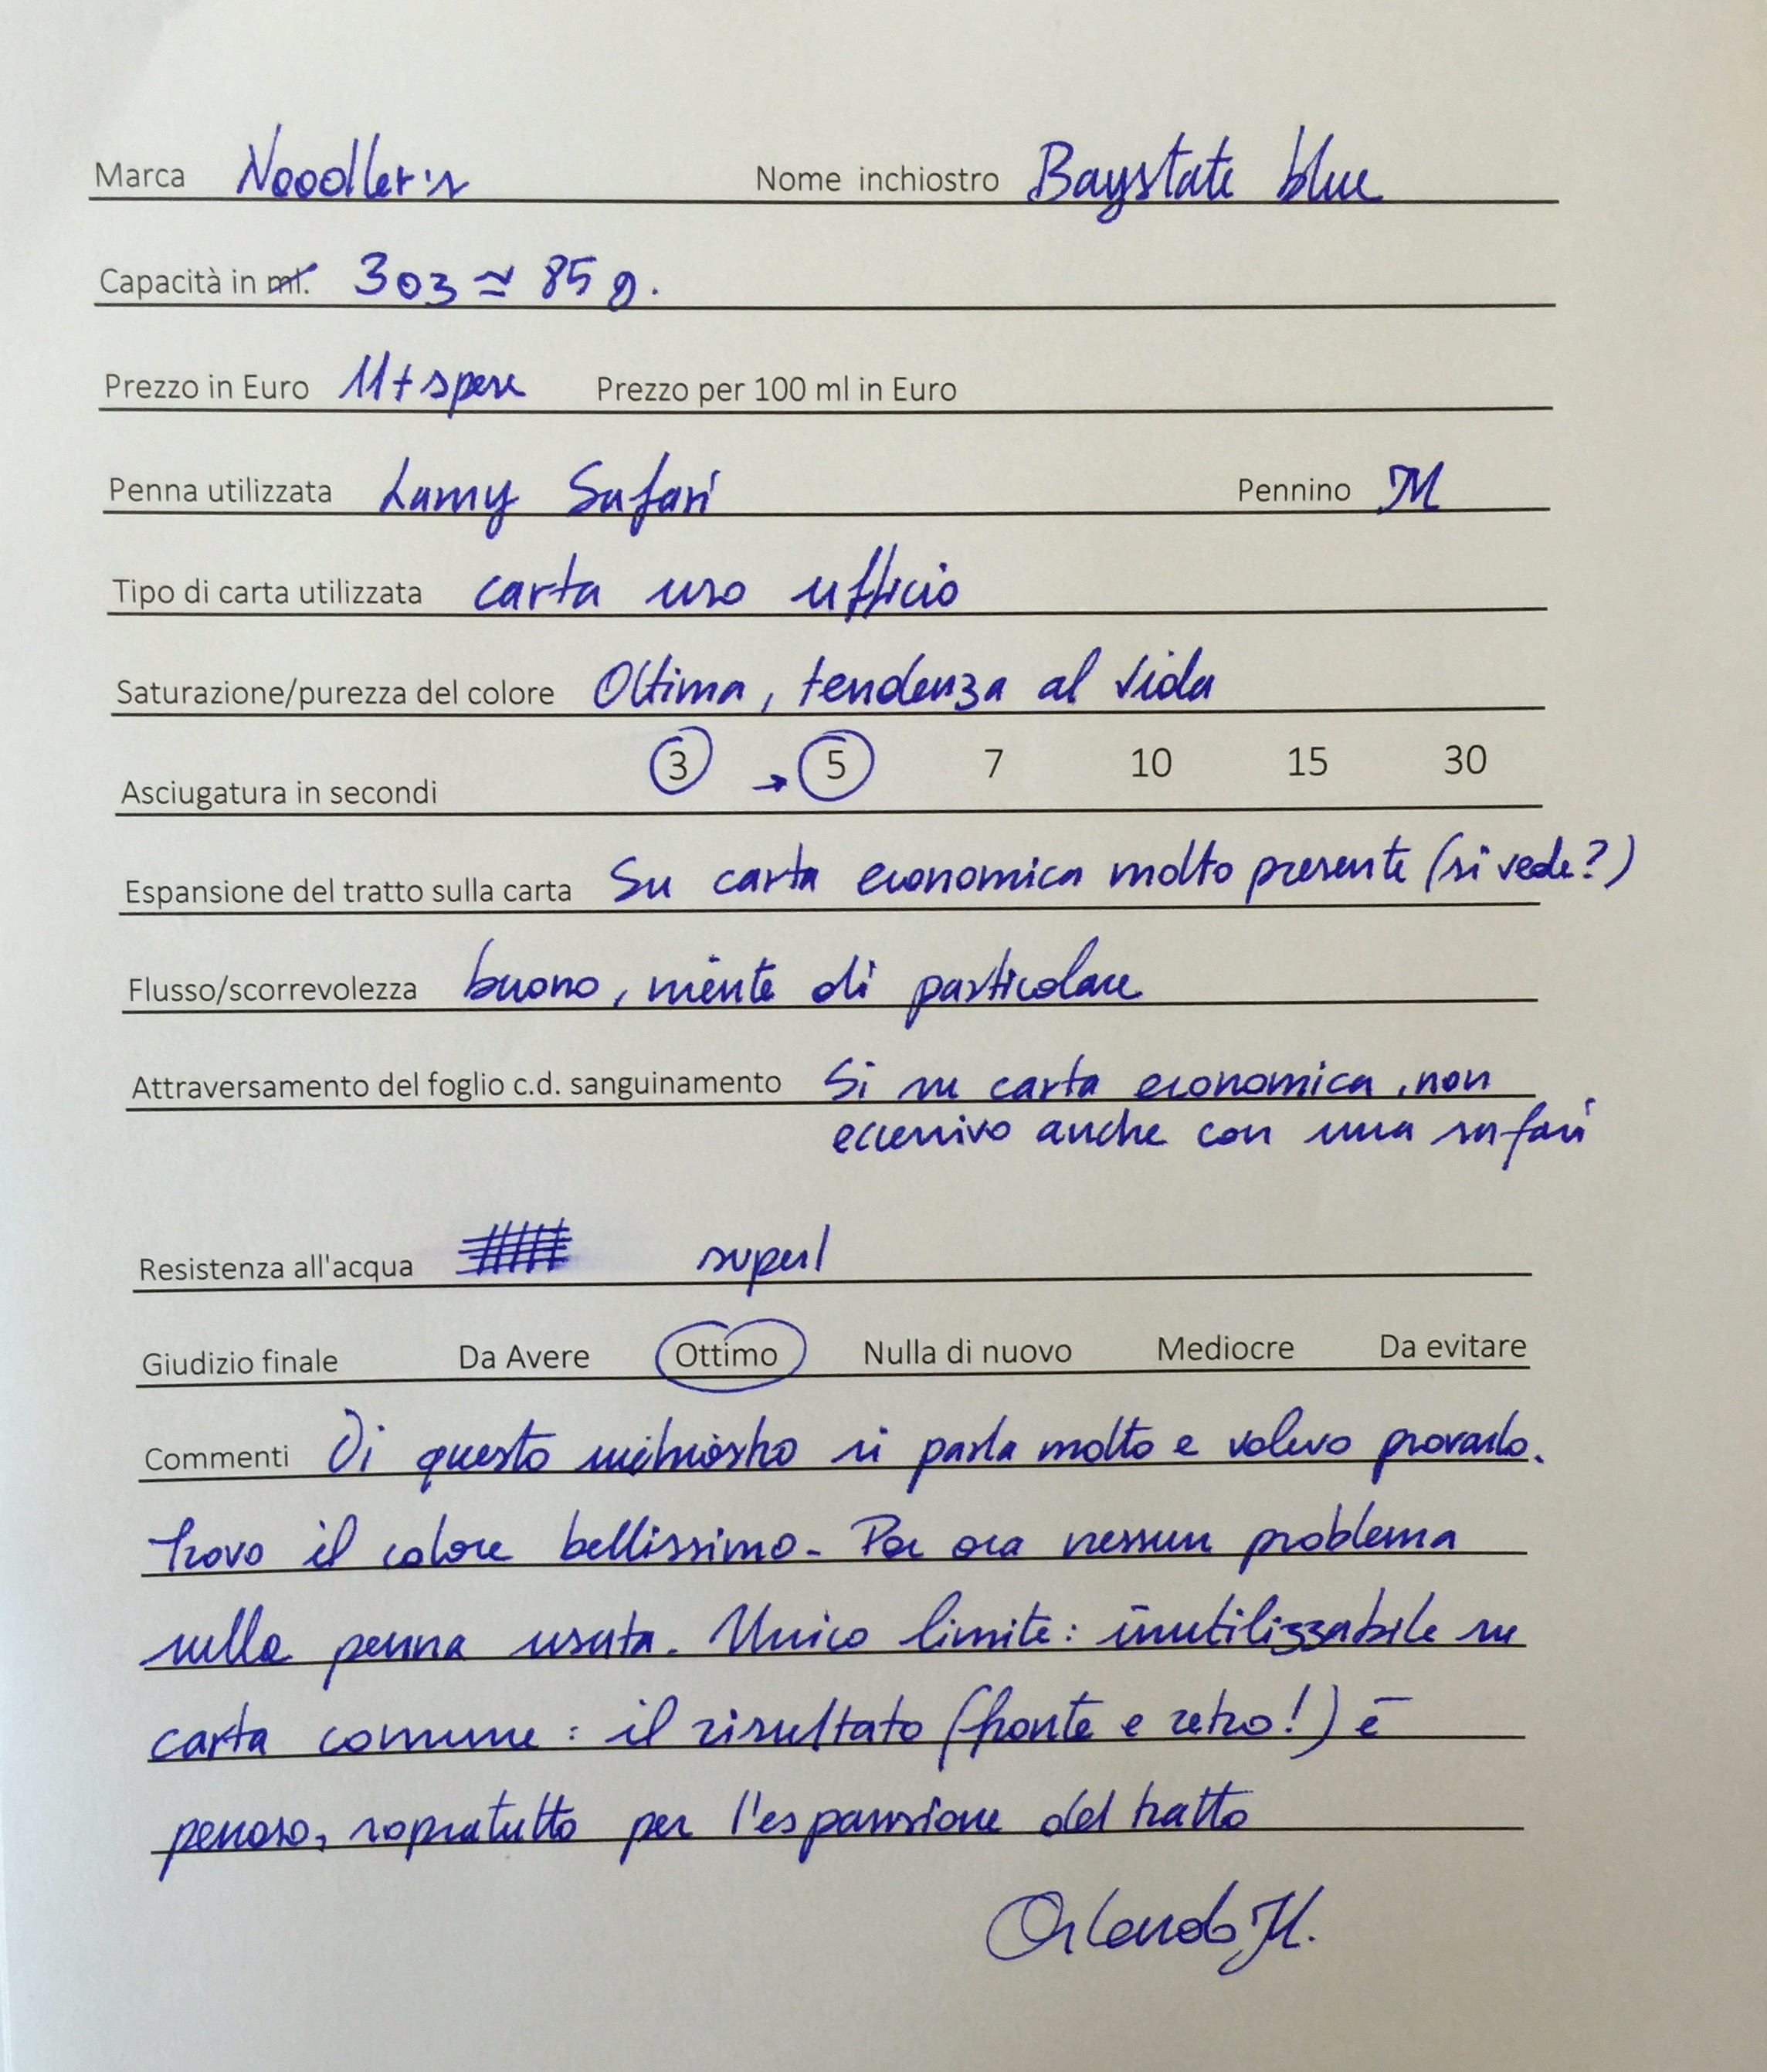 Marca Nooodler's Nome inchiostro Baystate blue
Capacità in ml. 3 oz ≃ 85 g.
Prezzo in Euro 11 + spese Prezzo per 100 ml in Euro
Penna utilizzata Lamy Safari Pennino M
Tipo di carta utilizzata carta uso ufficio
Saturazione/purezza del colore Ottima, tendenza al viola
3 → 5 7 10 15 30
Asciugatura in secondi
Espansione del tratto sulla carta Su carta economica molto presente (si vede?)
Flusso/scorrevolezza buono, niente di particolare
Attraversamento del foglio c.d. sanguinamento Si su carta economica, non
eccessivo anche con una safari
Resistenza all'acqua super!
Giudizio finale Da Avere Ottimo Nulla di nuovo Mediocre Da evitare
Commenti Di questo inchiostro si parla molto e volevo provarlo.
Trovo il colore bellissimo. Per ora nessun problema
sulla penna usata. Unico limite: inutilizzabile su
carta comune: il risultato (fronte e retro!) è
penoso, sopratutto per l'espansione del tratto
Orlando M.